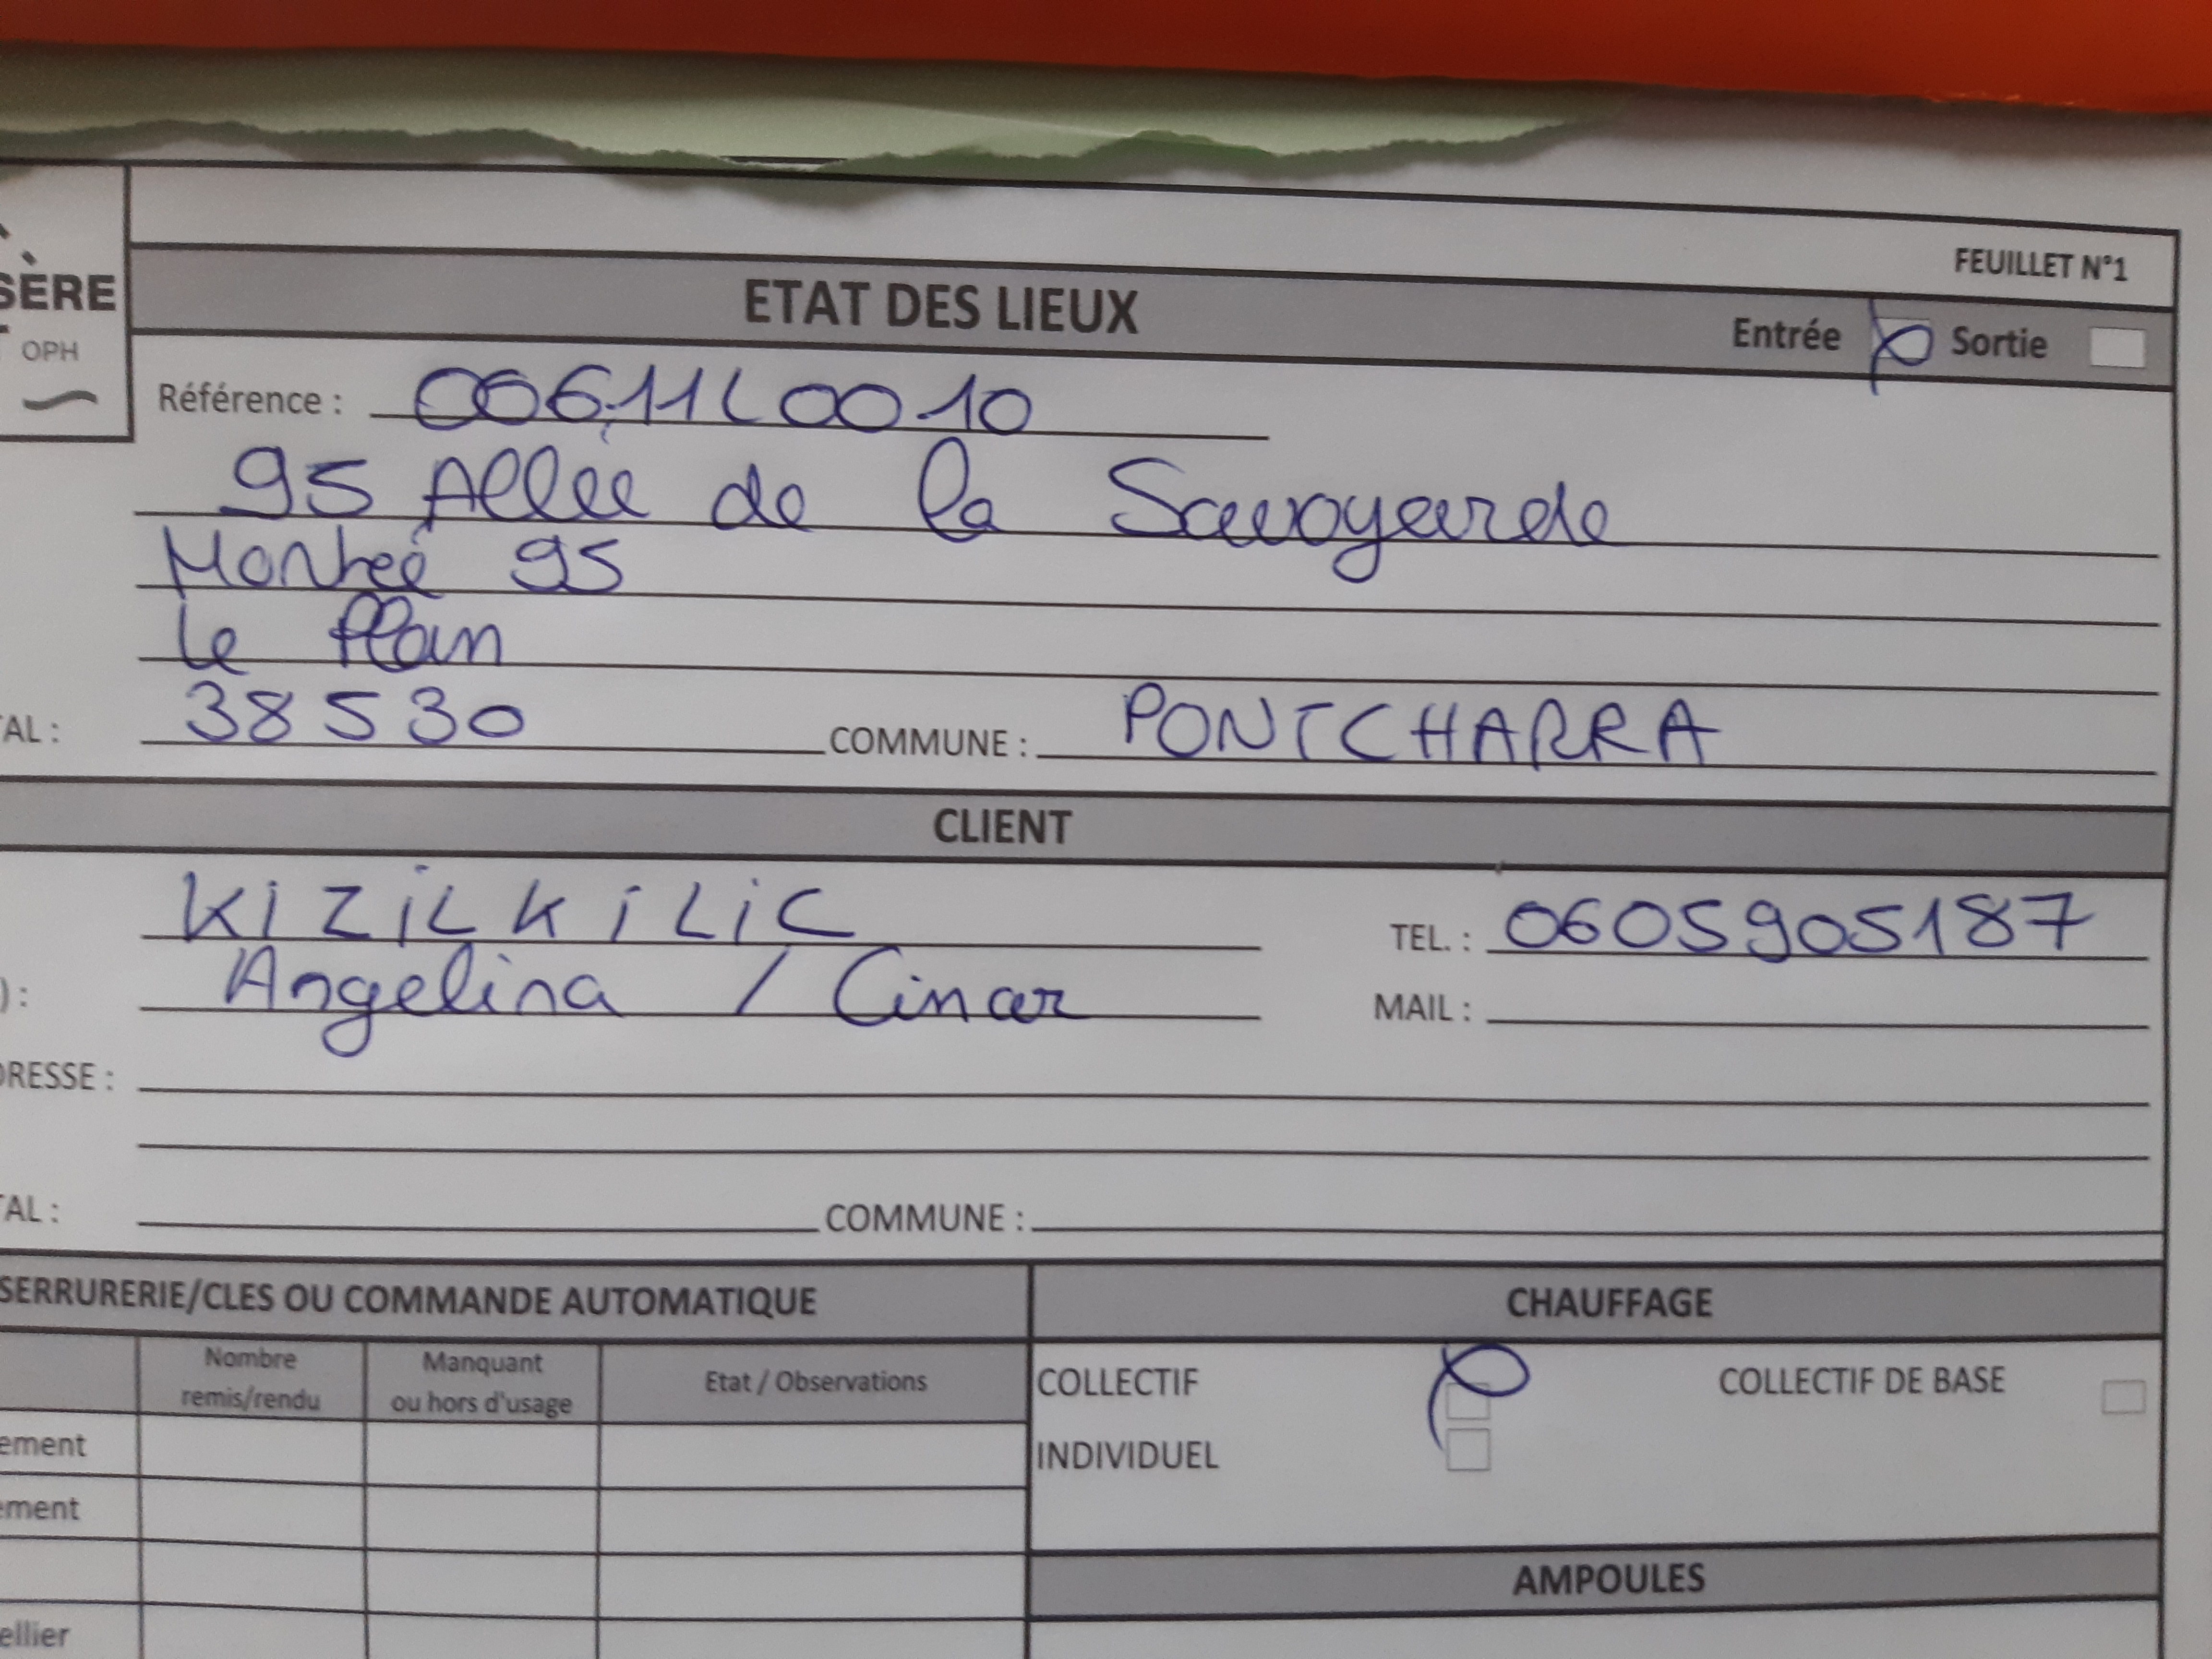 FEUILLET N°1
SÈRE
OPH
ETAT DES LIEUX
Entrée Sortie
Référence : 00611L0010
95 Allée de la Savoyarde
Montée 95
Le Plain
TAL : 38530 COMMUNE : PONTCHARRA
CLIENT
KIZILKILIC TEL. : 0605905187
) : Angelina / Cinar MAIL :
DRESSE :
TAL : COMMUNE :
SERRURERIE/CLES OU COMMANDE AUTOMATIQUE
CHAUFFAGE
Nombre remis/rendu
Manquant ou hors d'usage
Etat / Observations
COLLECTIF COLLECTIF DE BASE
INDIVIDUEL
ement
ement
ellier
AMPOULES